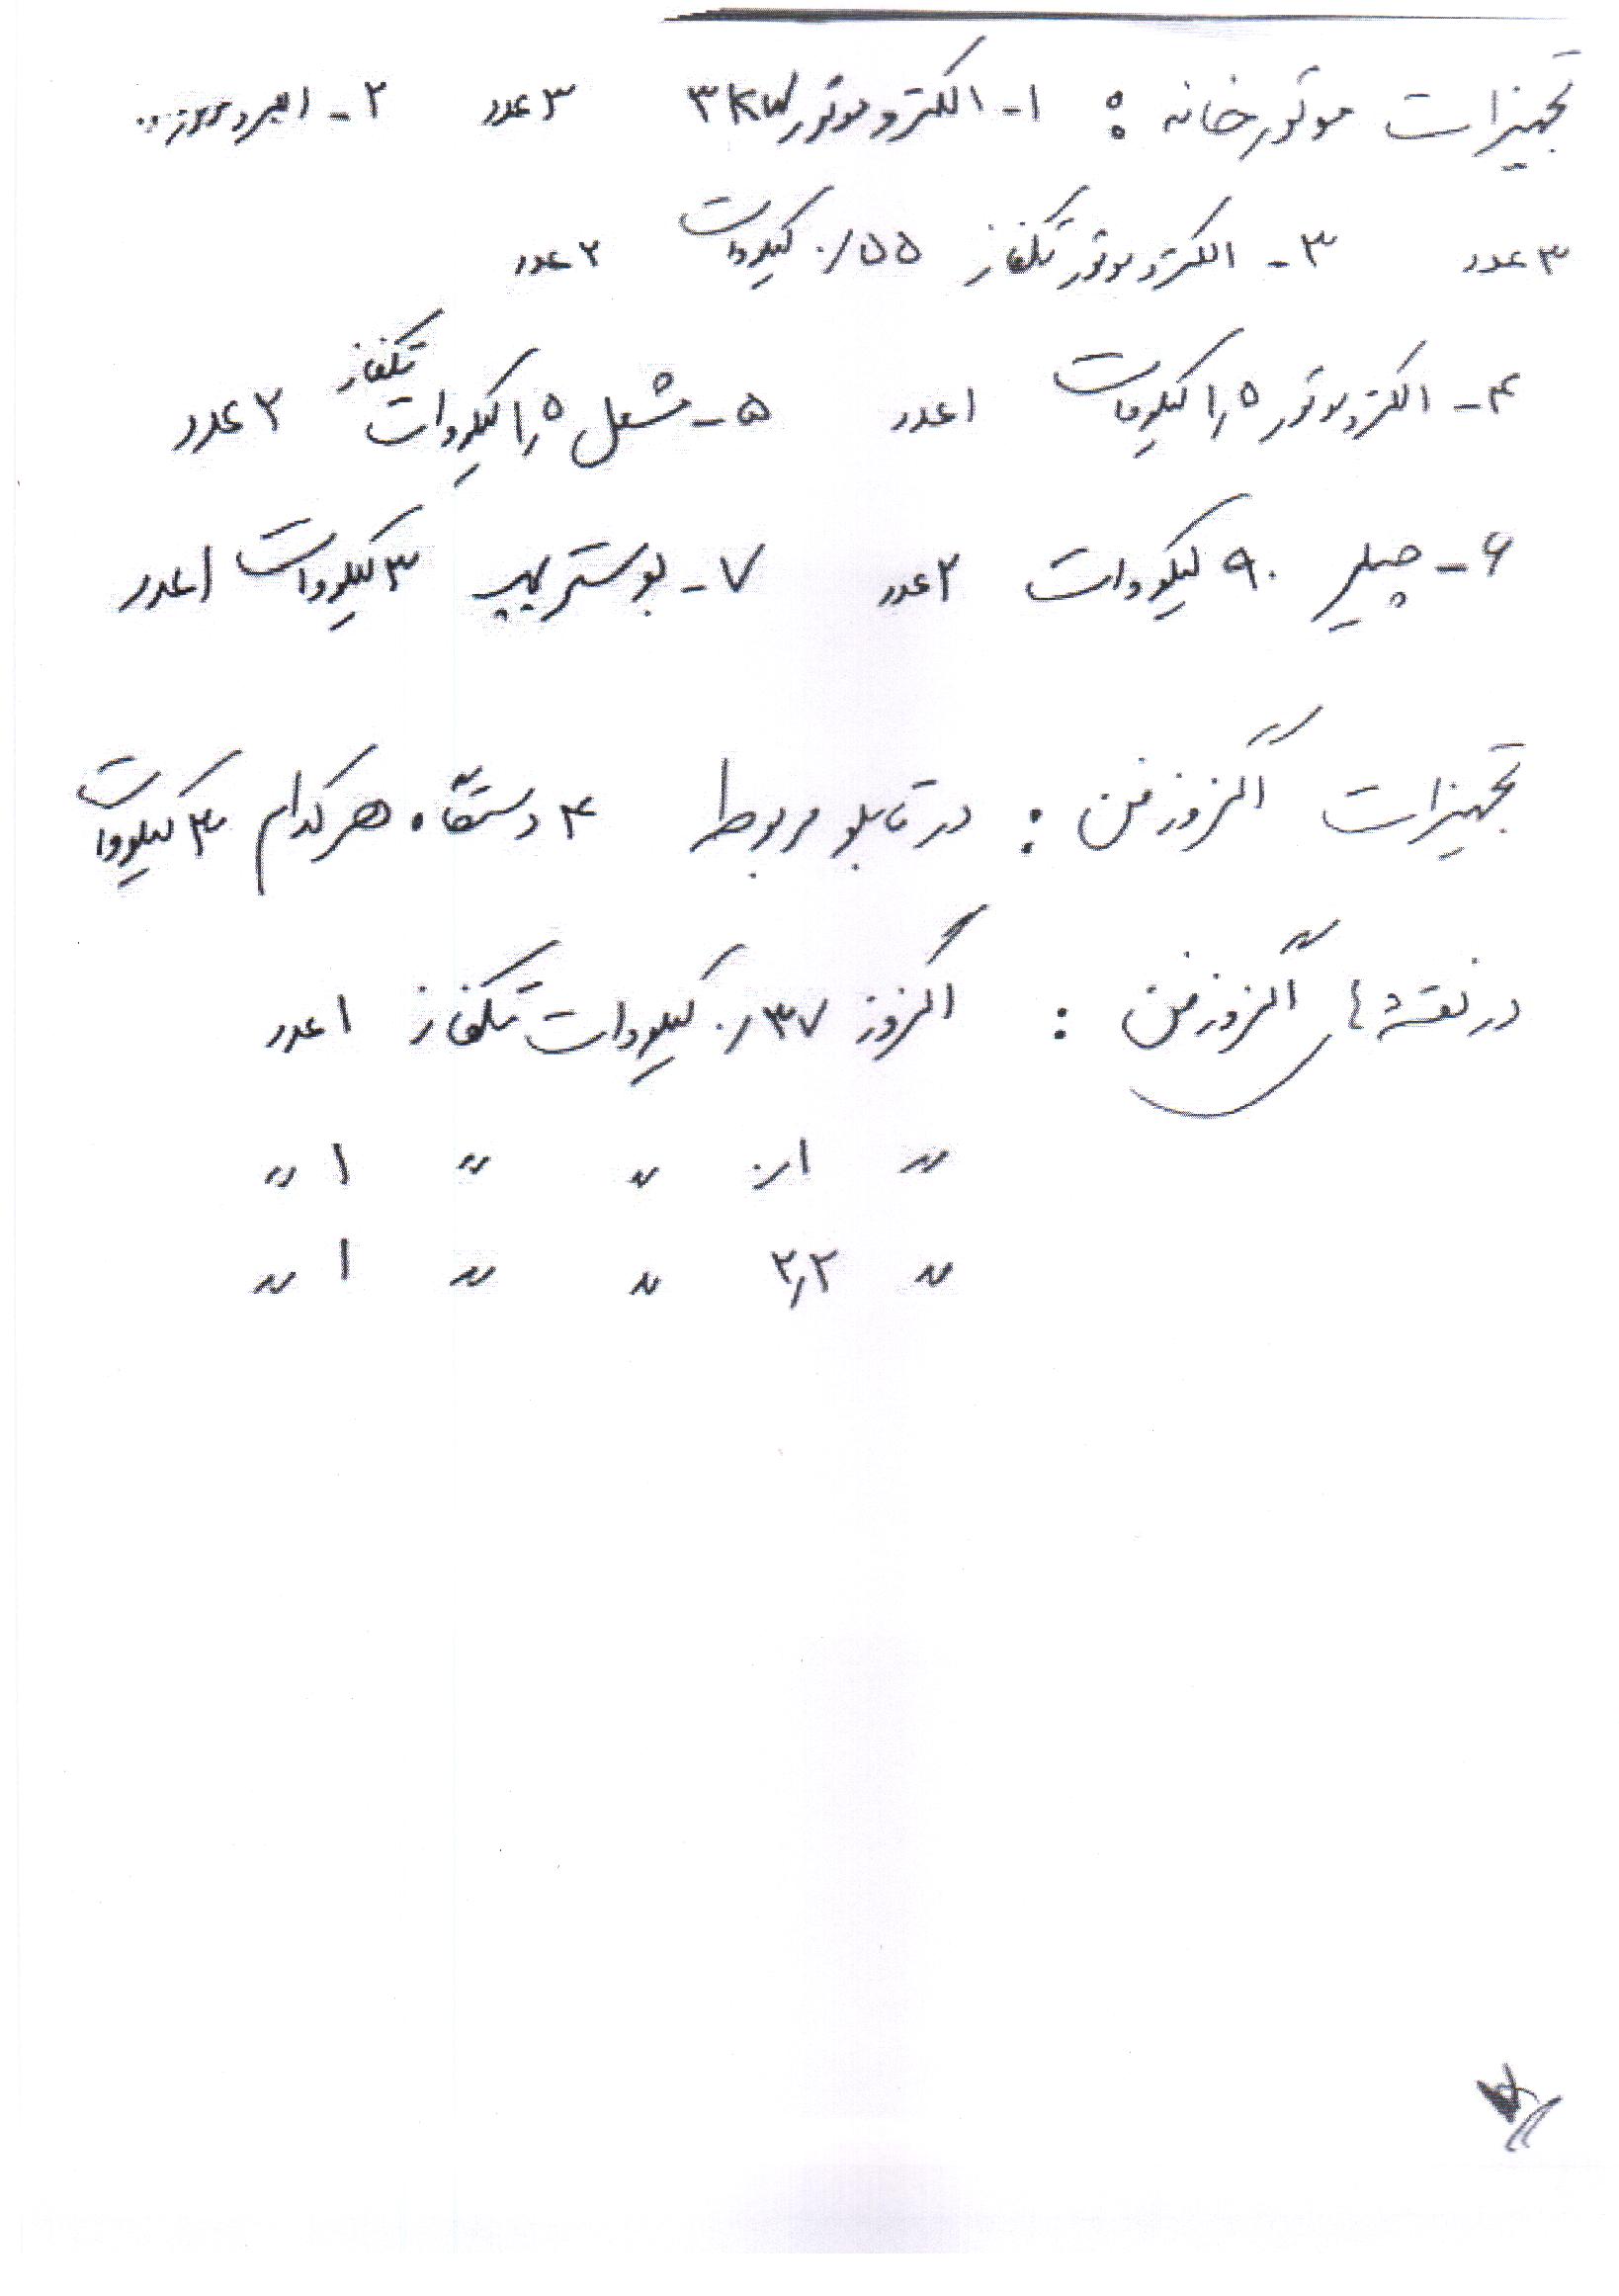 تجهیزات موتورخانه : ۱- الکتروموتور ۳KW ۳ عدد ۲-
۳ عدد ۳- الکتروموتور تکفاز ۰/۵۵ کیلووات ۲ عدد
۴- الکتروموتور ۱٫۵ کیلووات ۱ عدد ۵- مشعل ۱٫۵ کیلووات تکفاز ۲ عدد
۶- چیلر ۹۰ کیلووات ۲ عدد ۷- بوستر پمپ ۳ کیلووات ۱ عدد
تجهیزات اگزوزفن : در تابلو مربوط ۴ دستگاه هر کدام ۴ کیلووات
در نقشه های اگزوزفن : اگزوز ۰٫۳۷ کیلووات تکفاز ۱ عدد
〃 ۰٫۱ 〃 〃 ۱ 〃
〃 ۲٫۲ 〃 〃 ۱ 〃